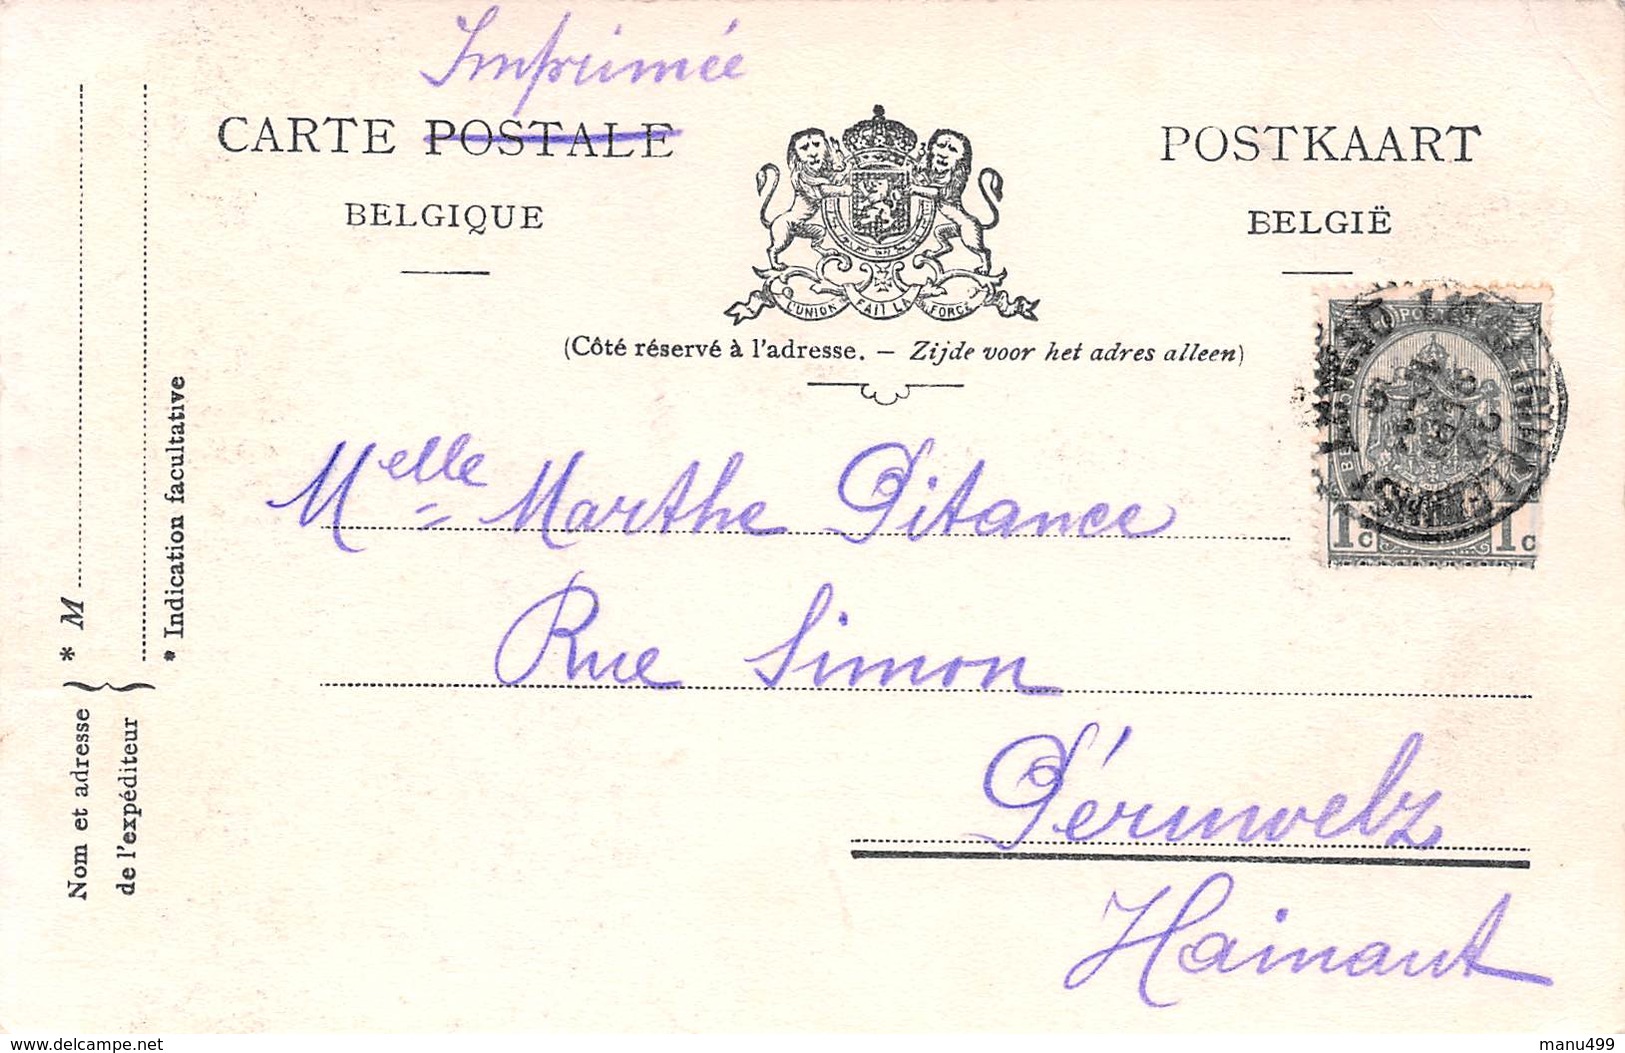 Imprimée
CARTE POSTALE
BELGIQUE
POSTKAART
BELGIË
L'UNION FAIT LA FORCE
(Côté réservé à l'adresse. — Zijde voor het adres alleen)
Melle Marthe Pitance
Rue Simon
Péruwelz
Hainaut
1c 1c
Nom et adresse
de l'expéditeur
* M
* Indication facultative
www.delcampe.net
manu499